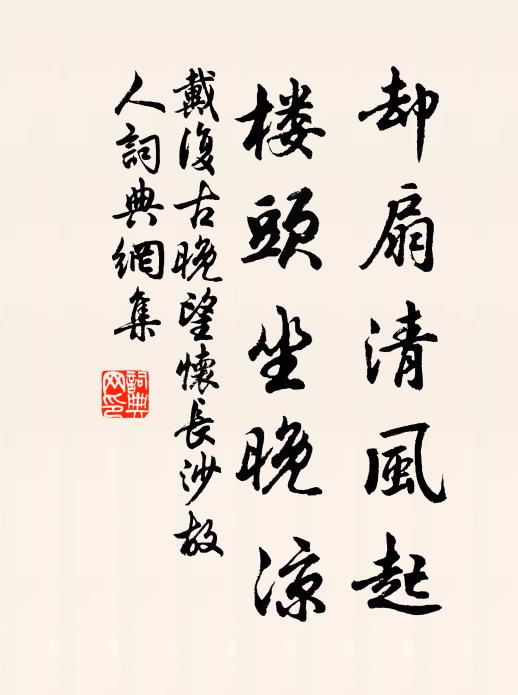 却扇清風起
楼頭坐晚涼
戴復古晚望懷長沙故
人詞典網集
詞典
网印